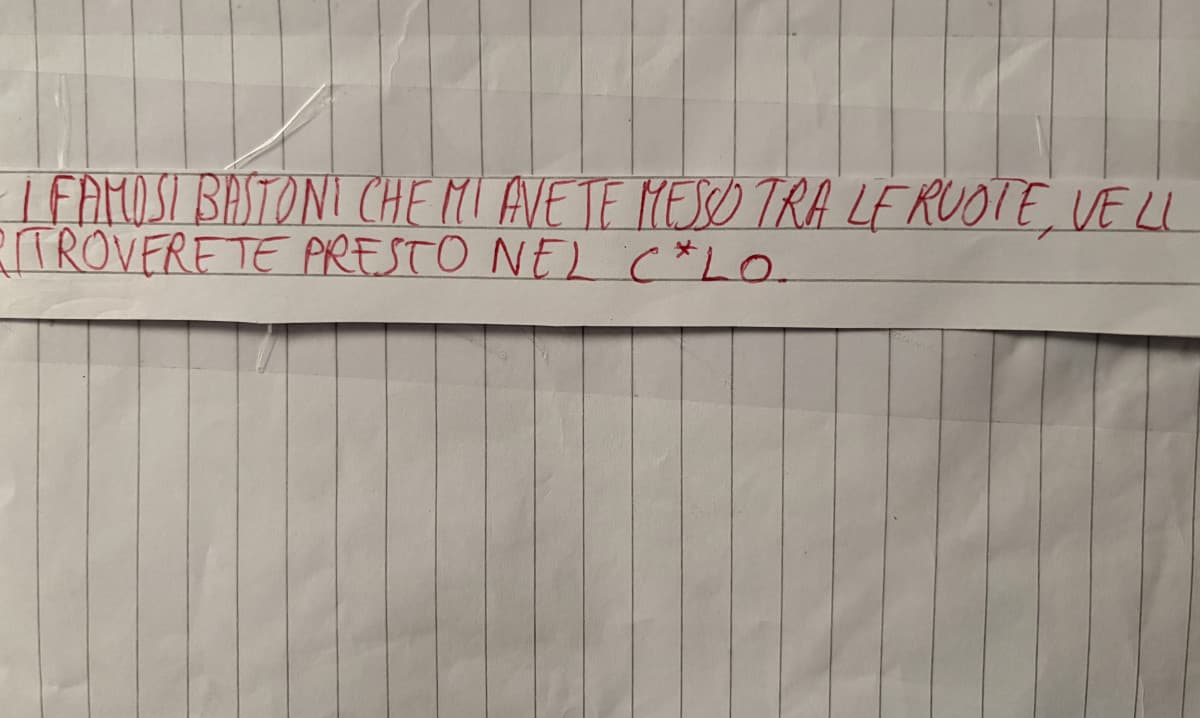 I FAMOSI BASTONI CHE MI AVETE MESSO TRA LE RUOTE, VE LI
RITROVERETE PRESTO NEL C*LO.